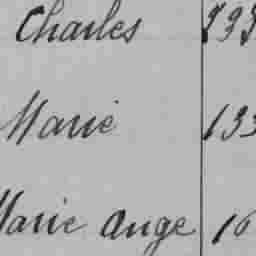 Charles
Marie 133
Marie Ange 16